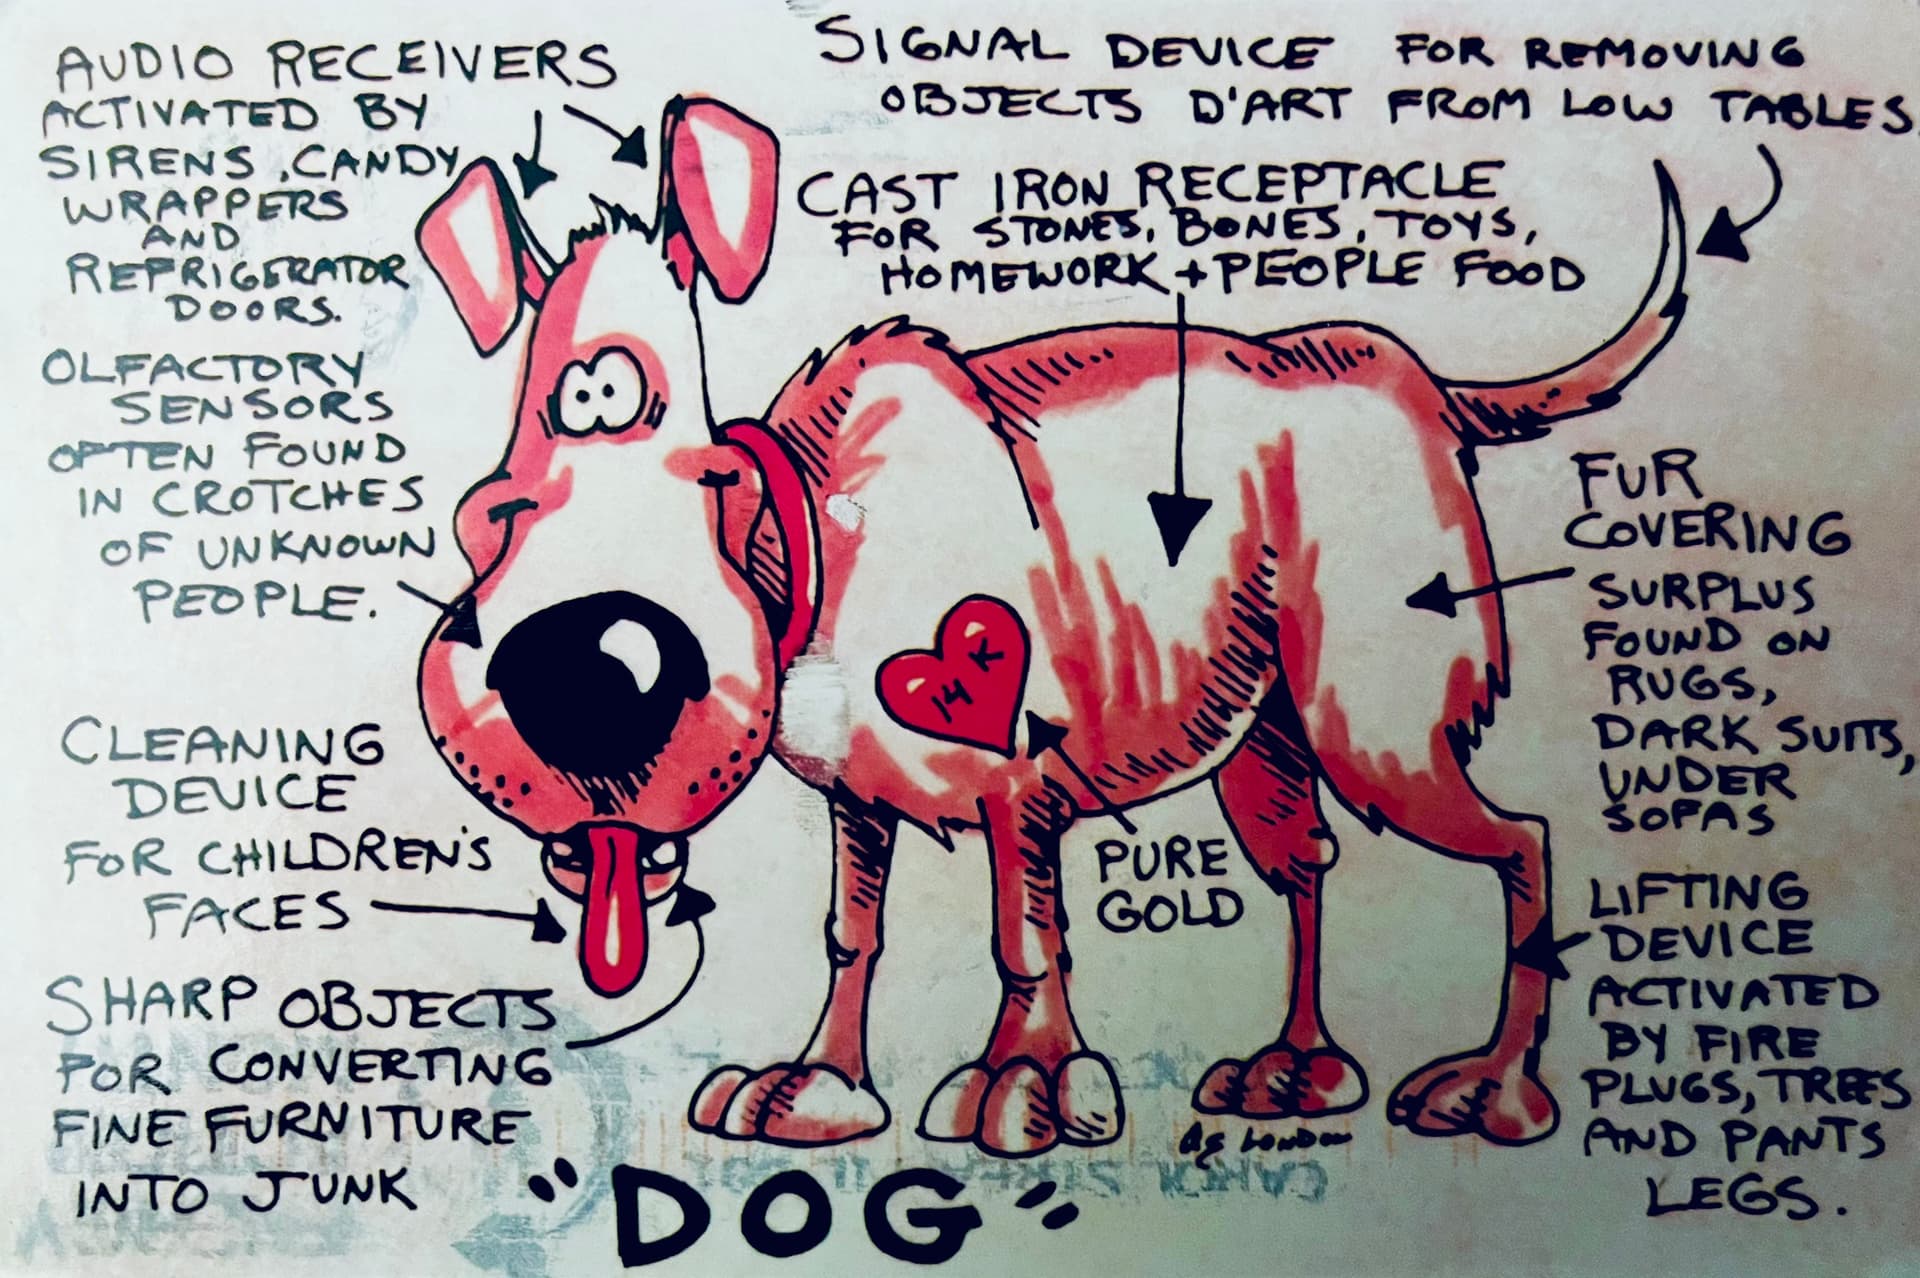 AUDIO RECEIVERS
ACTIVATED BY
SIRENS, CANDY
WRAPPERS
AND
REFRIGERATOR
DOORS.
SIGNAL DEVICE FOR REMOVING
OBJECTS D'ART FROM LOW TABLES
CAST IRON RECEPTACLE
FOR STONES, BONES, TOYS,
HOMEWORK + PEOPLE FOOD
OLFACTORY
SENSORS
OFTEN FOUND
IN CROTCHES
OF UNKNOWN
PEOPLE.
FUR
COVERING
SURPLUS
FOUND ON
RUGS,
DARK SUITS,
UNDER
SOFAS
14 K
PURE
GOLD
CLEANING
DEVICE
FOR CHILDREN'S
FACES
LIFTING
DEVICE
ACTIVATED
BY FIRE
PLUGS, TREES
AND PANTS
LEGS.
SHARP OBJECTS
FOR CONVERTING
FINE FURNITURE
INTO JUNK
London
"DOG"